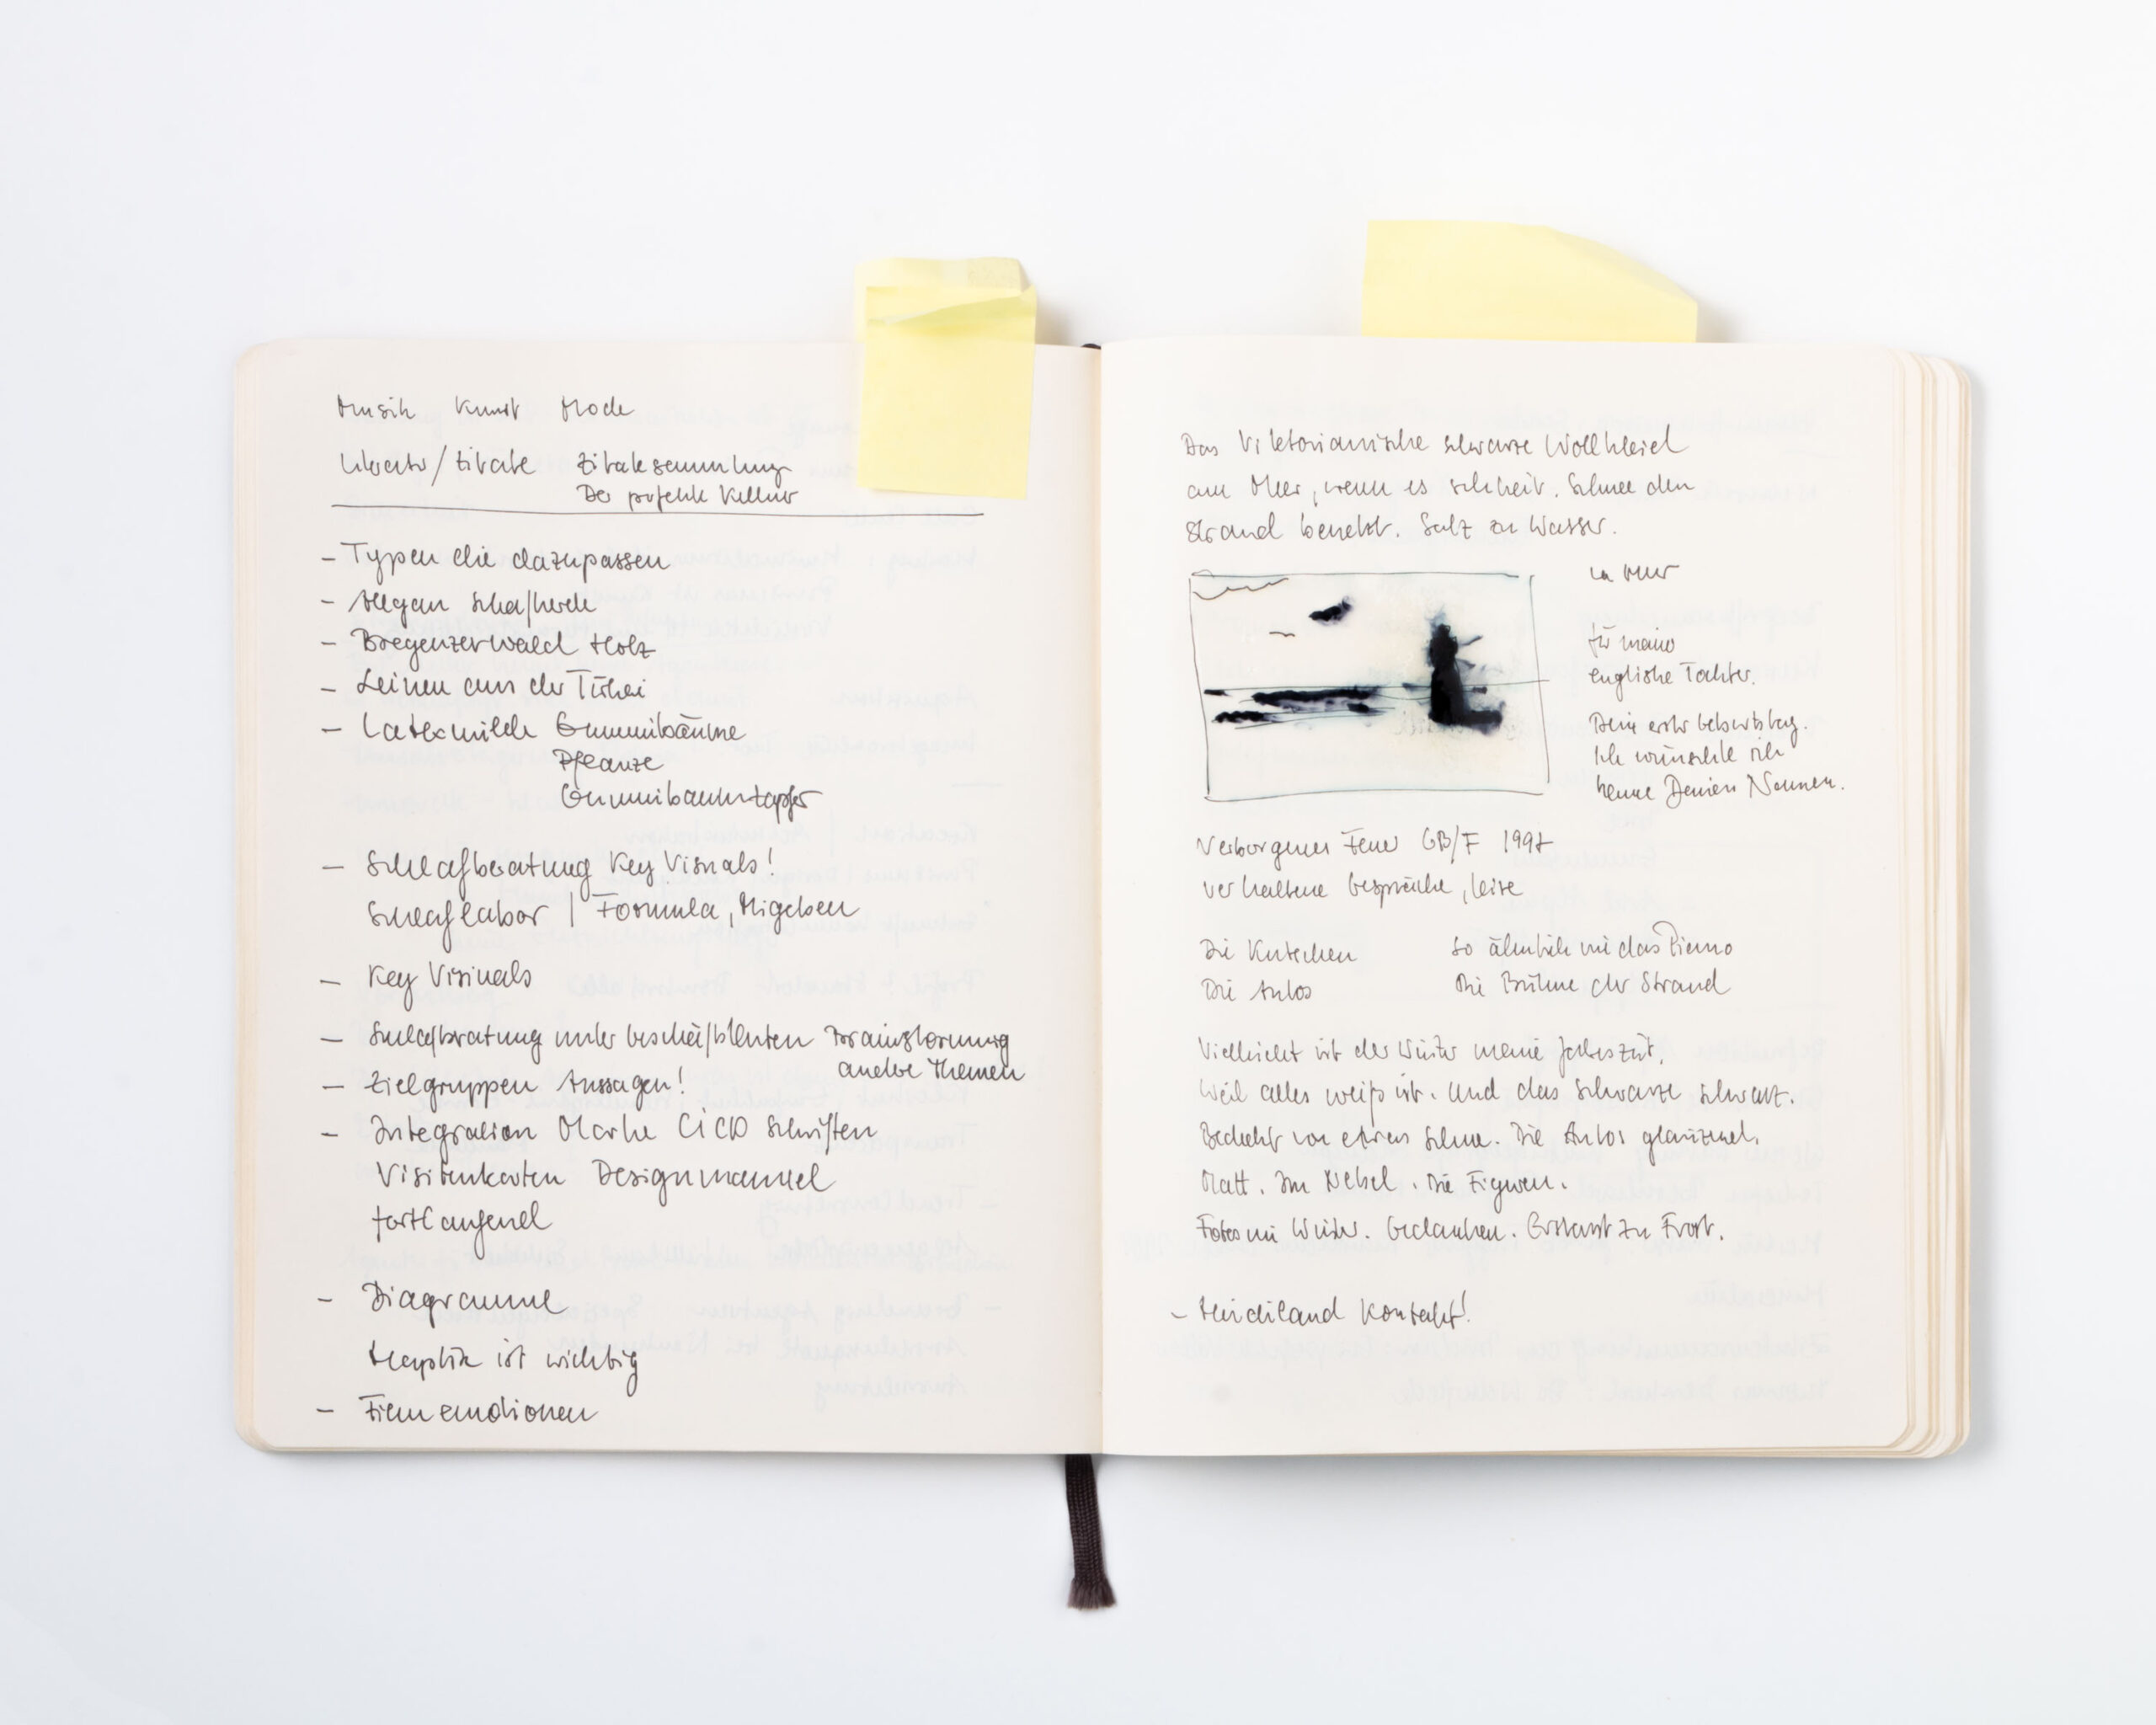 Musik Kunst Mode
Zitate Zitatesammlung
Der perfekte Kellner
– Typen die dazupassen
– Schafherde
– Bregenzerwald Holz
– Leinen aus der Türkei
– Latexmilch Gummibäume
Pflanze
Gummibaumzapfer
– Schlafberatung Key Visuals!
Schlaflabor | Formula,
– Key Visuals
– Schlafberatung unter
andere Themen
– Zielgruppen Aussagen!
– Integration Marke CI CD Schriften
Visitenkarten Designmanuel
fortlaufend
– Diagramme
Haptik ist wichtig
– Filmemotionen
Das Viktorianische schwarze Wollkleid
am Meer, wenn es schneit. Schnee den
Strand benetzt. Salz zu Wasser.
für meine
englische Tochter.
Dein erster Geburtstag.
Ich wünschte ich
kenne Deinen Namen.
Verborgenes Feuer GB/F 1997
verhaltene Gespräche, leise
Die Kutschen so ähnlich wie das Piano
Die Autos Die Bühne der Strand
Vielleicht ist der Winter meine Jahreszeit,
Weil alles weiß ist. Und das Schwarze schwarz.
Bedeckt von etwas Schnee. Die Autos glänzend.
Matt. Im Nebel. Die Figuren.
Fotos im Winter. Gedanken. Erstarrt zu Frost.
– Heidiland Kontakt!